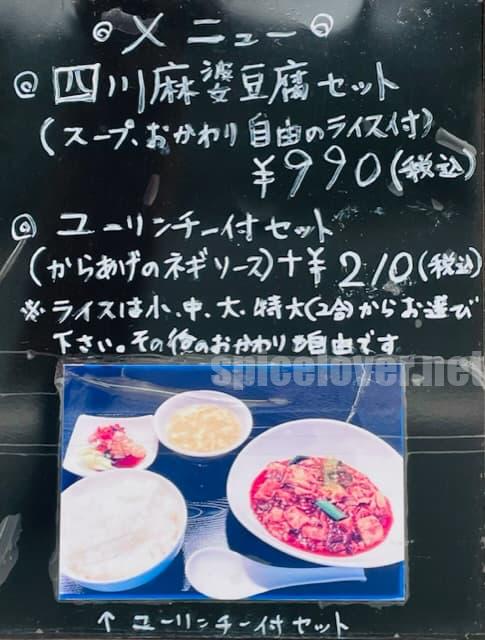 ◎ メニュー ◎
◎ 四川麻婆豆腐セット
(スープ、おかわり自由のライス付)
¥990(税込)
◎ ユーリンチー付セット
(からあげのネギソース)+¥210(税込)
※ライスは小、中、大、特大(2合)からお選び
下さい。その後のおかわり自由です
spicelover.net
↑ ユーリンチー付セット